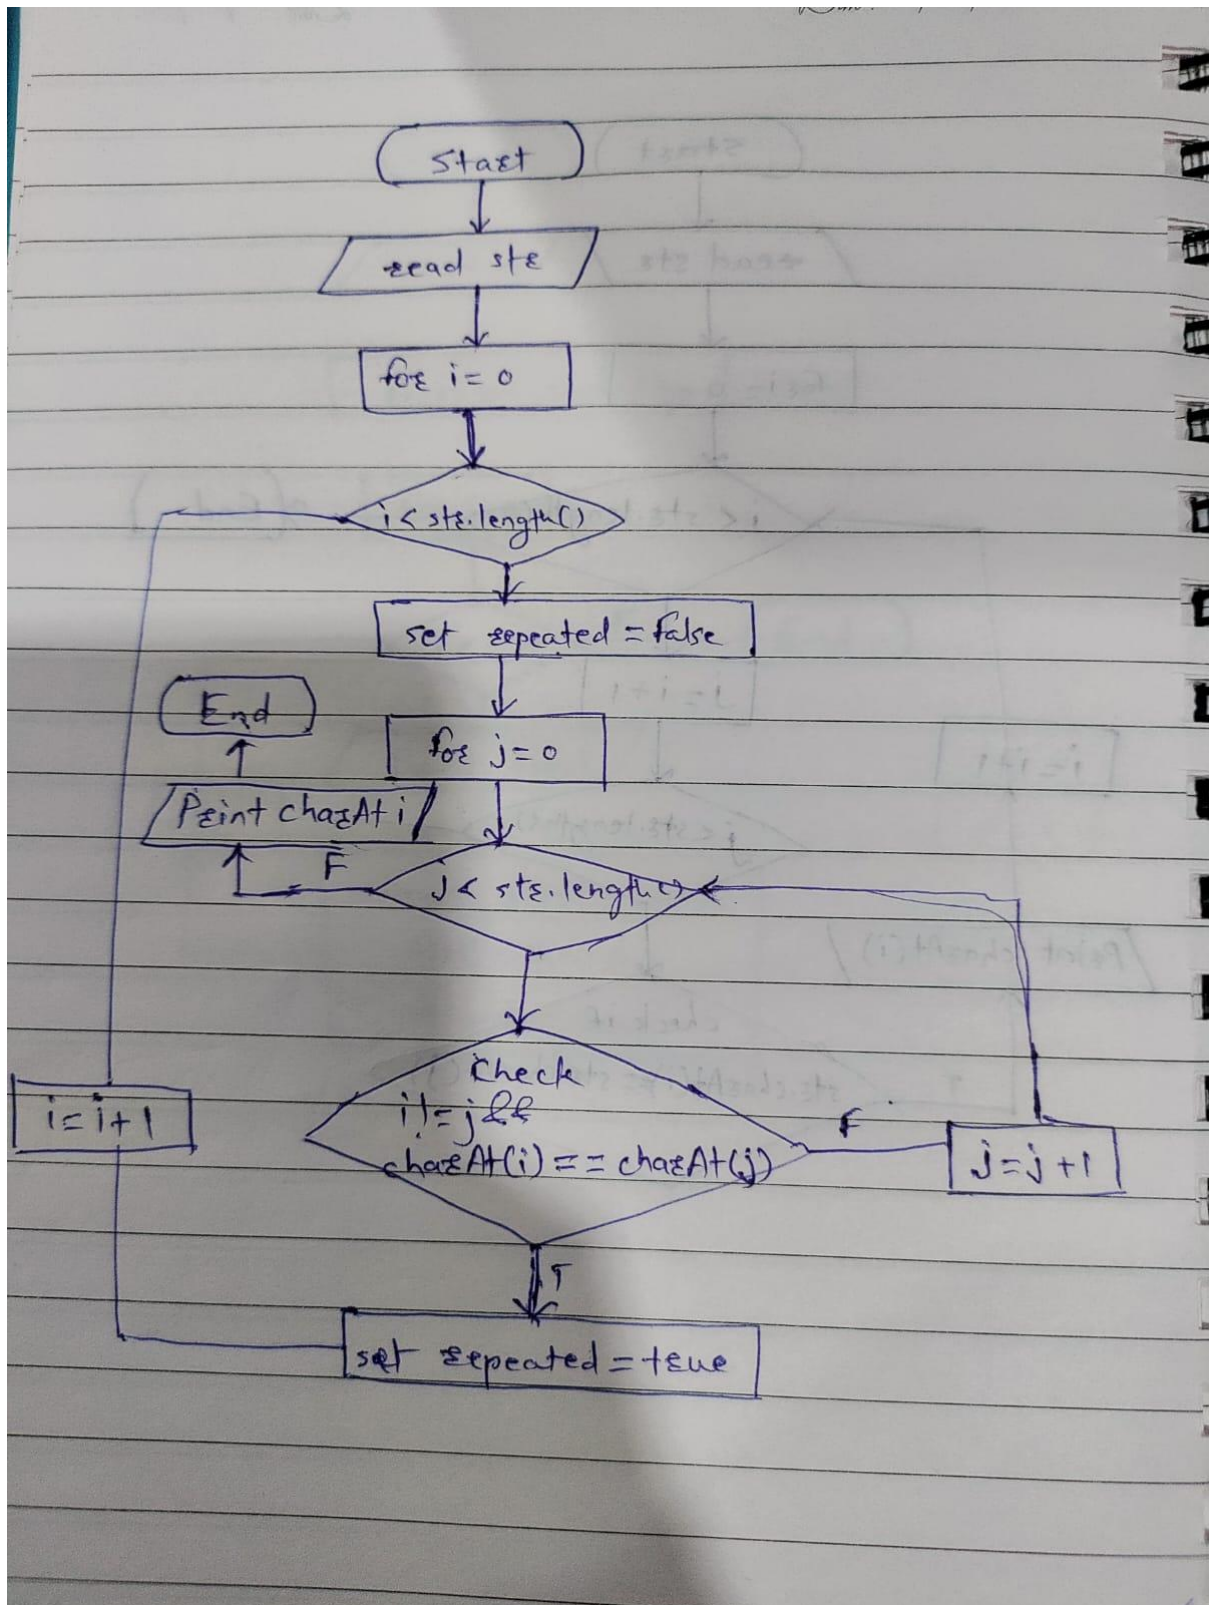 Start
read str
for i = 0
i < str.length()
set repeated = false
End
for j = 0
Print charAt i
F
j < str.length()
Check
i != j &&
charAt(i) == charAt(j)
F
i = i + 1
j = j + 1
T
set repeated = true